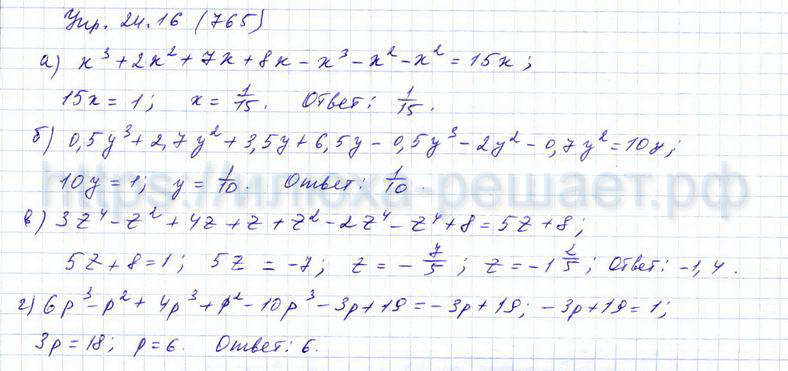 Упр. 24.16 (765)
а) x³ + 2x² + 7x + 8x - x³ - x² - x² = 15x;
15x = 1; x = 1/15. Ответ: 1/15.
б) 0,5y³ + 2,7y² + 3,5y + 6,5y - 0,5y³ - 2y² - 0,7y² = 10y;
10y = 1; y = 1/10. Ответ: 1/10.
https://илюха-решает.рф
в) 3z⁴ - z² + 4z + z + z² - 2z⁴ - z⁴ + 8 = 5z + 8;
5z + 8 = 1; 5z = -7; z = - 7/5; z = -1 2/5; Ответ: -1,4.
г) 6p³ - p² + 4p³ + p² - 10p³ - 3p + 19 = -3p + 19; -3p + 19 = 1;
3p = 18; p = 6. Ответ: 6.